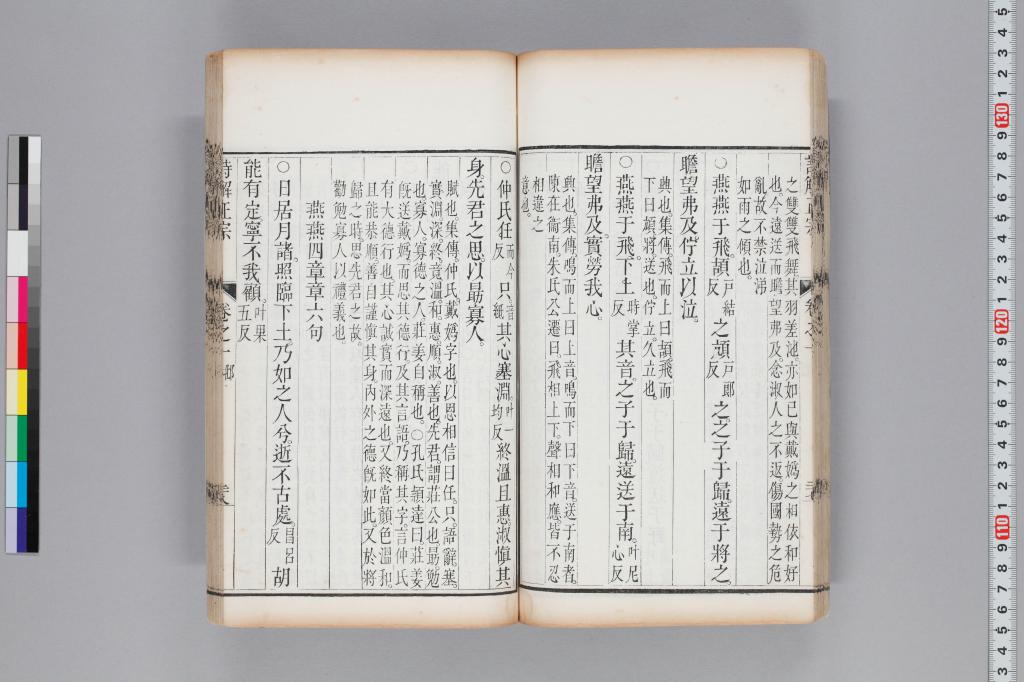 之雙雙飛舞其羽差池亦如己與戴媯之相依和好
也今遠送而瞻望弗及念淑人之不返傷國勢之危
亂故不禁泣涕
如雨之傾也
○燕燕于飛頡戶結反之頏戶郎反之之子于歸遠于將之
瞻望弗及佇立以泣
興也集傳飛而上曰頡飛而
下曰頏將送也佇立久立也
○燕燕于飛下上時掌反其音之子于歸遠送于南叶尼心反
瞻望弗及實勞我心
興也集傳鳴而上曰上音鳴而下曰下音送于南者
陳在衞南朱氏公遷曰飛相上下聲相和應皆不忍
相違之
意也
○仲氏任而今反只音紙其心塞淵叶一均反終溫且惠淑愼其
身先君之思以勗寡人
賦也集傳仲氏戴媯字也以恩相信曰任只語辭塞
實淵深終竟溫和惠順淑善也先君謂莊公也勗勉
也寡人寡德之人莊姜自稱也○孔氏穎達曰莊姜
旣送戴媯而思其德行及其言語乃稱其字言仲氏
有大德行也其心誠實而深遠也又終當顏色溫和
且能恭順善自謹愼其身內外之德旣如此又於將
歸之時思先君之故
勸勉寡人以禮義也
燕燕四章章六句
○日居月諸照臨下土乃如之人兮逝不古處昌呂反胡
能有定寧不我顧叶果五反
詩解正宗 卷之一 邶